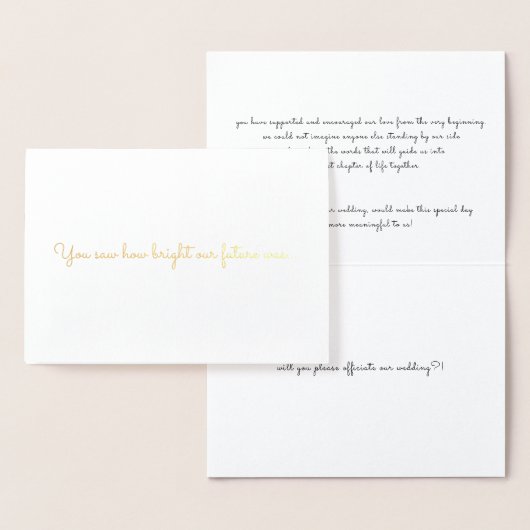 You saw how bright our future was...
you have supported and encouraged our love from the very beginning.
we could not imagine anyone else standing by our side
the words that will guide us into
chapter of life together
wedding, would make this special day
more meaningful to us!
will you please officiate our wedding?!